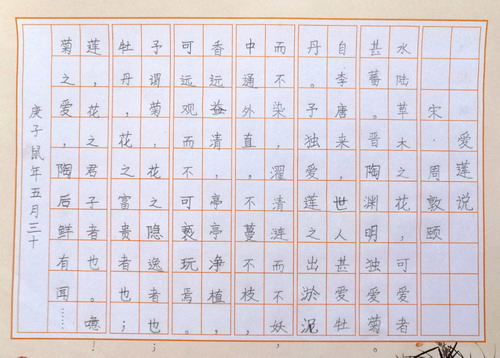 爱莲说
宋·周敦颐
水陆草木之花，可爱者
甚蕃。晋陶渊明独爱菊。
自李唐来，世人甚爱牡
丹。予独爱莲之出淤泥
而不染，濯清涟而不妖，
中通外直，不蔓不枝，
香远益清，亭亭净植，
可远观而不可亵玩焉。
予谓菊，花之隐逸者也；
牡丹，花之富贵者也；
莲，花之君子者也。噫！
菊之爱，陶后鲜有闻……
庚子鼠年五月三十